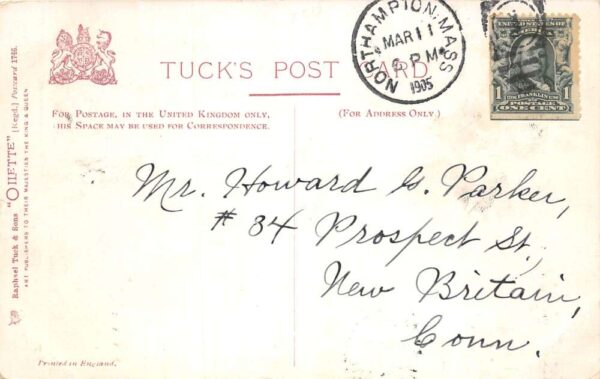 TUCK'S POST CARD
FOR POSTAGE, IN THE UNITED KINGDOM ONLY,
THIS SPACE MAY BE USED FOR CORRESPONDENCE.
(FOR ADDRESS ONLY.)
NORTHAMPTON, MASS
MAR 11
6 PM
1905
1 FRANKLIN 1
POSTAGE
ONE CENT
Mr. Howard G. Parker,
# 34
Prospect St.,
New Britain,
Conn.
Raphael Tuck & Sons "OILETTE" [Regd.] Postcard 1746.
ART PUBLISHERS TO THEIR MAJESTIES THE KING & QUEEN
Printed in England.